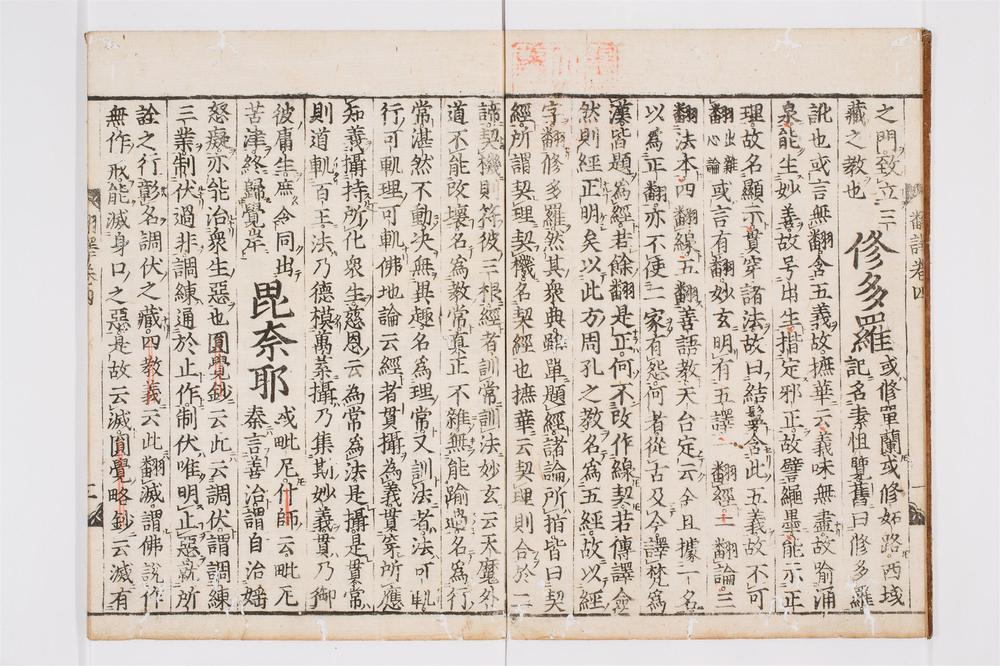 之門致立三
藏之教也
修多羅
或修單蘭或修妬路西域
記名素怛覽舊曰修多羅
訛也或言無翻含五義故撫華云義味無盡故喻涌
泉能生妙善故号出生揩定邪正故譬繩墨能示正
理故名顯示貫穿諸法故曰結鬘含此五義故不可
翻出雜心論或言有翻妙玄明有五譯一翻經二翻論三
翻法本四翻線五翻善語教天台定云今且據一名
以爲正翻亦不便二家有怨何者從古及今譯梵爲
漢皆題爲經若餘翻是正何不改作線契若傳譯僉
然則經正明矣以此方周孔之教名爲五經故以經
字翻修多羅然其衆典雖單題經諸論所指皆曰契
經所謂契理契機名契經也撫華云契理則合於二
諦契機則符彼三根經者訓常訓法妙玄云天魔外
道不能改壞名爲教常真正不雜無能踰過名爲行
常湛然不動決無異趣名爲理常又訓法者法可軌
行可軌理可軌佛地論云經者貫攝為義貫穿所應
知義攝持所化衆生慈恩云為常為法是攝是貫常
則道軌百王法乃德模萬葉攝乃集斯妙義貫乃御
彼庸生庶令同出
苦津終歸覺岸
毘奈耶
或毗尼什師云毗尼
秦言善治謂自治婬
怒癡亦能治衆生惡也圓覺鈔云此云調伏謂調練
三業制伏過非調練通於止作制伏唯明止惡就所
詮之行彰名調伏之藏四教義云此翻滅謂佛說作
無作戒能滅身口之惡是故云滅圓覺略鈔云滅有
翻譯卷四